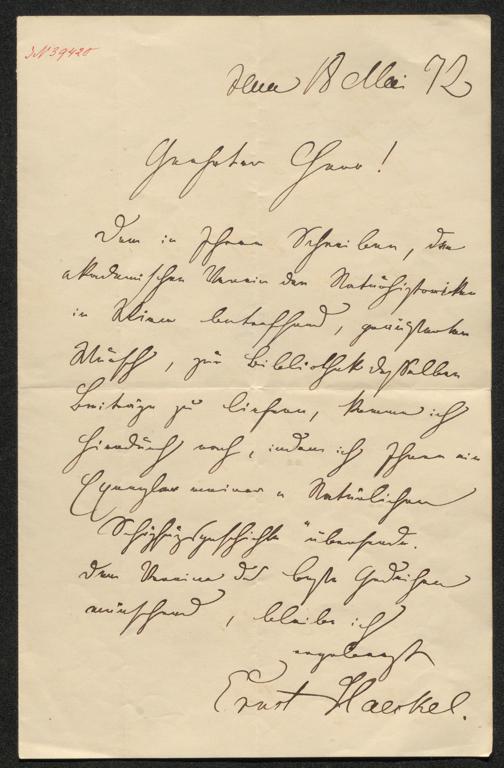 IN 39420
Jena 18 Mai 72
Geehrter Herr!
Dem in Ihrem Schreiben, den
akademischen Verein der Naturhistoriker
in Wien betreffend, geäusserten
Wunsch, zur Bibliothek desselben
Beiträge zu liefern, komme ich
hierdurch nach, indem ich Ihnen ein
Exemplar meiner „Natürlichen
Schöpfungsgeschichte" übersende.
Dem Vereine das beste Gedeihen
wünschend, bleibe ich
ergebenst
Ernst Haeckel.